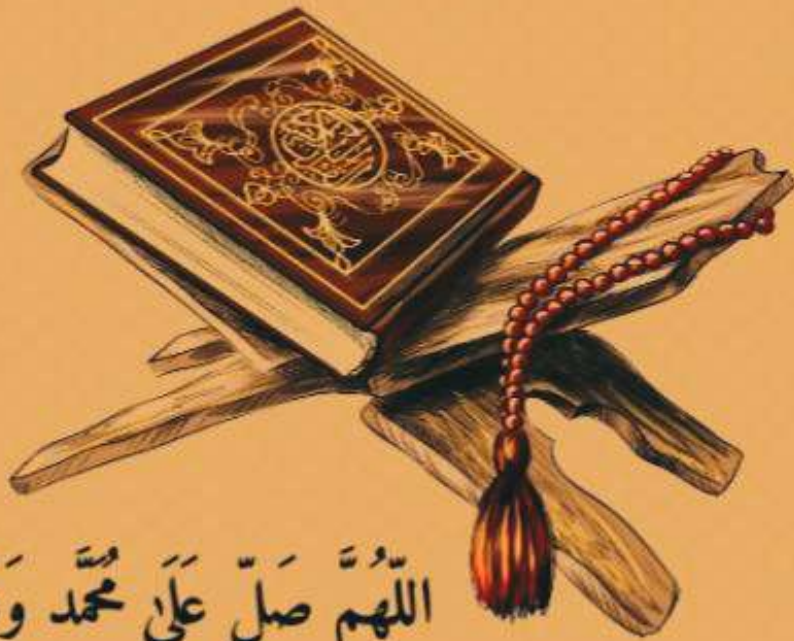 اللّهُمَّ صَلِّ عَلَىٰ مُحَمَّد وَ